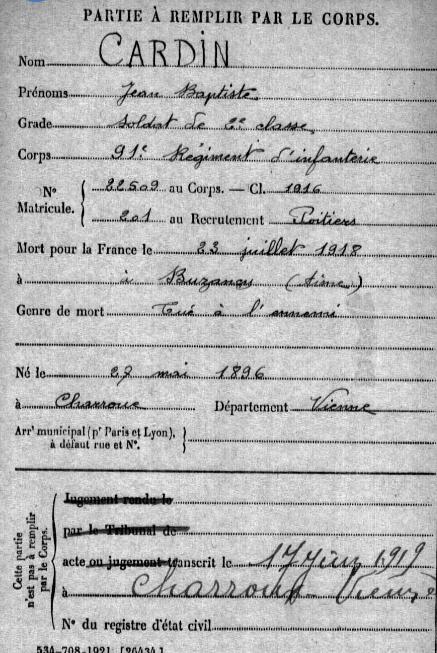 PARTIE À REMPLIR PAR LE CORPS.
Nom CARDIN
Prénoms Jean Baptiste
Grade Soldat de 2e classe
Corps 91e Régiment d'infanterie
N° Matricule. { 22509 au Corps. — Cl. 1916
201 au Recrutement Poitiers
Mort pour la France le 23 juillet 1918
à à Buzancy (Aisne)
Genre de mort Tué à l'ennemi
Né le 27 mai 1896
à Charroux Département Vienne
Arrt municipal (pr Paris et Lyon), }
à défaut rue et N°.
Cette partie n'est pas à remplir par le Corps.
Jugement rendu le
par le Tribunal de
acte ou jugement transcrit le 17 juin 1919
à Charroux Vienne
N° du registre d'état civil
534-708-1921. [26434.]